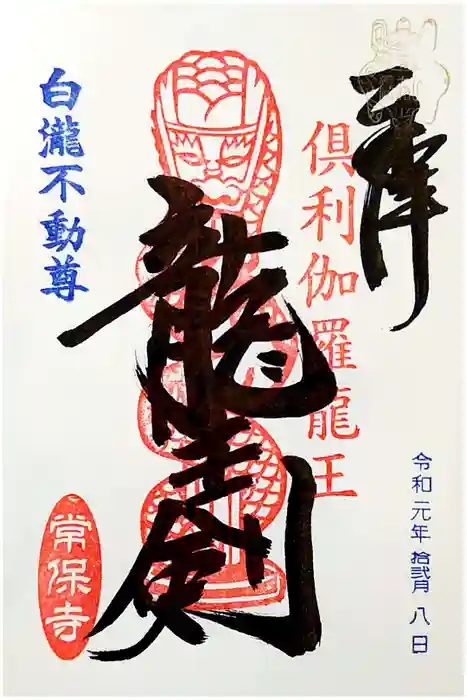 奉拝
倶利伽羅龍王
龍王剣
白瀧不動尊
常保寺
令和元年 拾弐月 八日